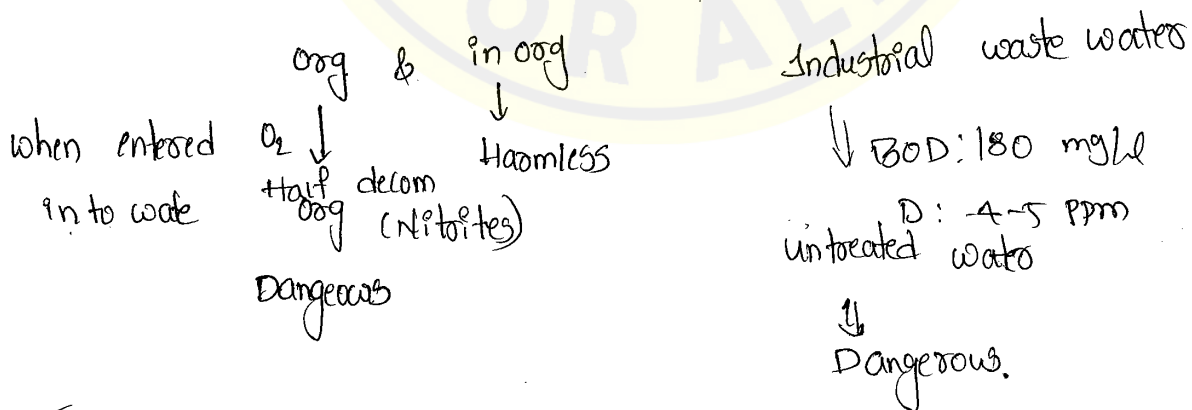 org & in org
when entered O₂ ↓ ↓ Harmless
in to wate Half decom
org (Nitrites)
Dangerous
Industrial waste waters
⇓ BOD: 180 mg/l
D: -4-5 ppm
untreated water
⇓
Dangerous.
OR AL